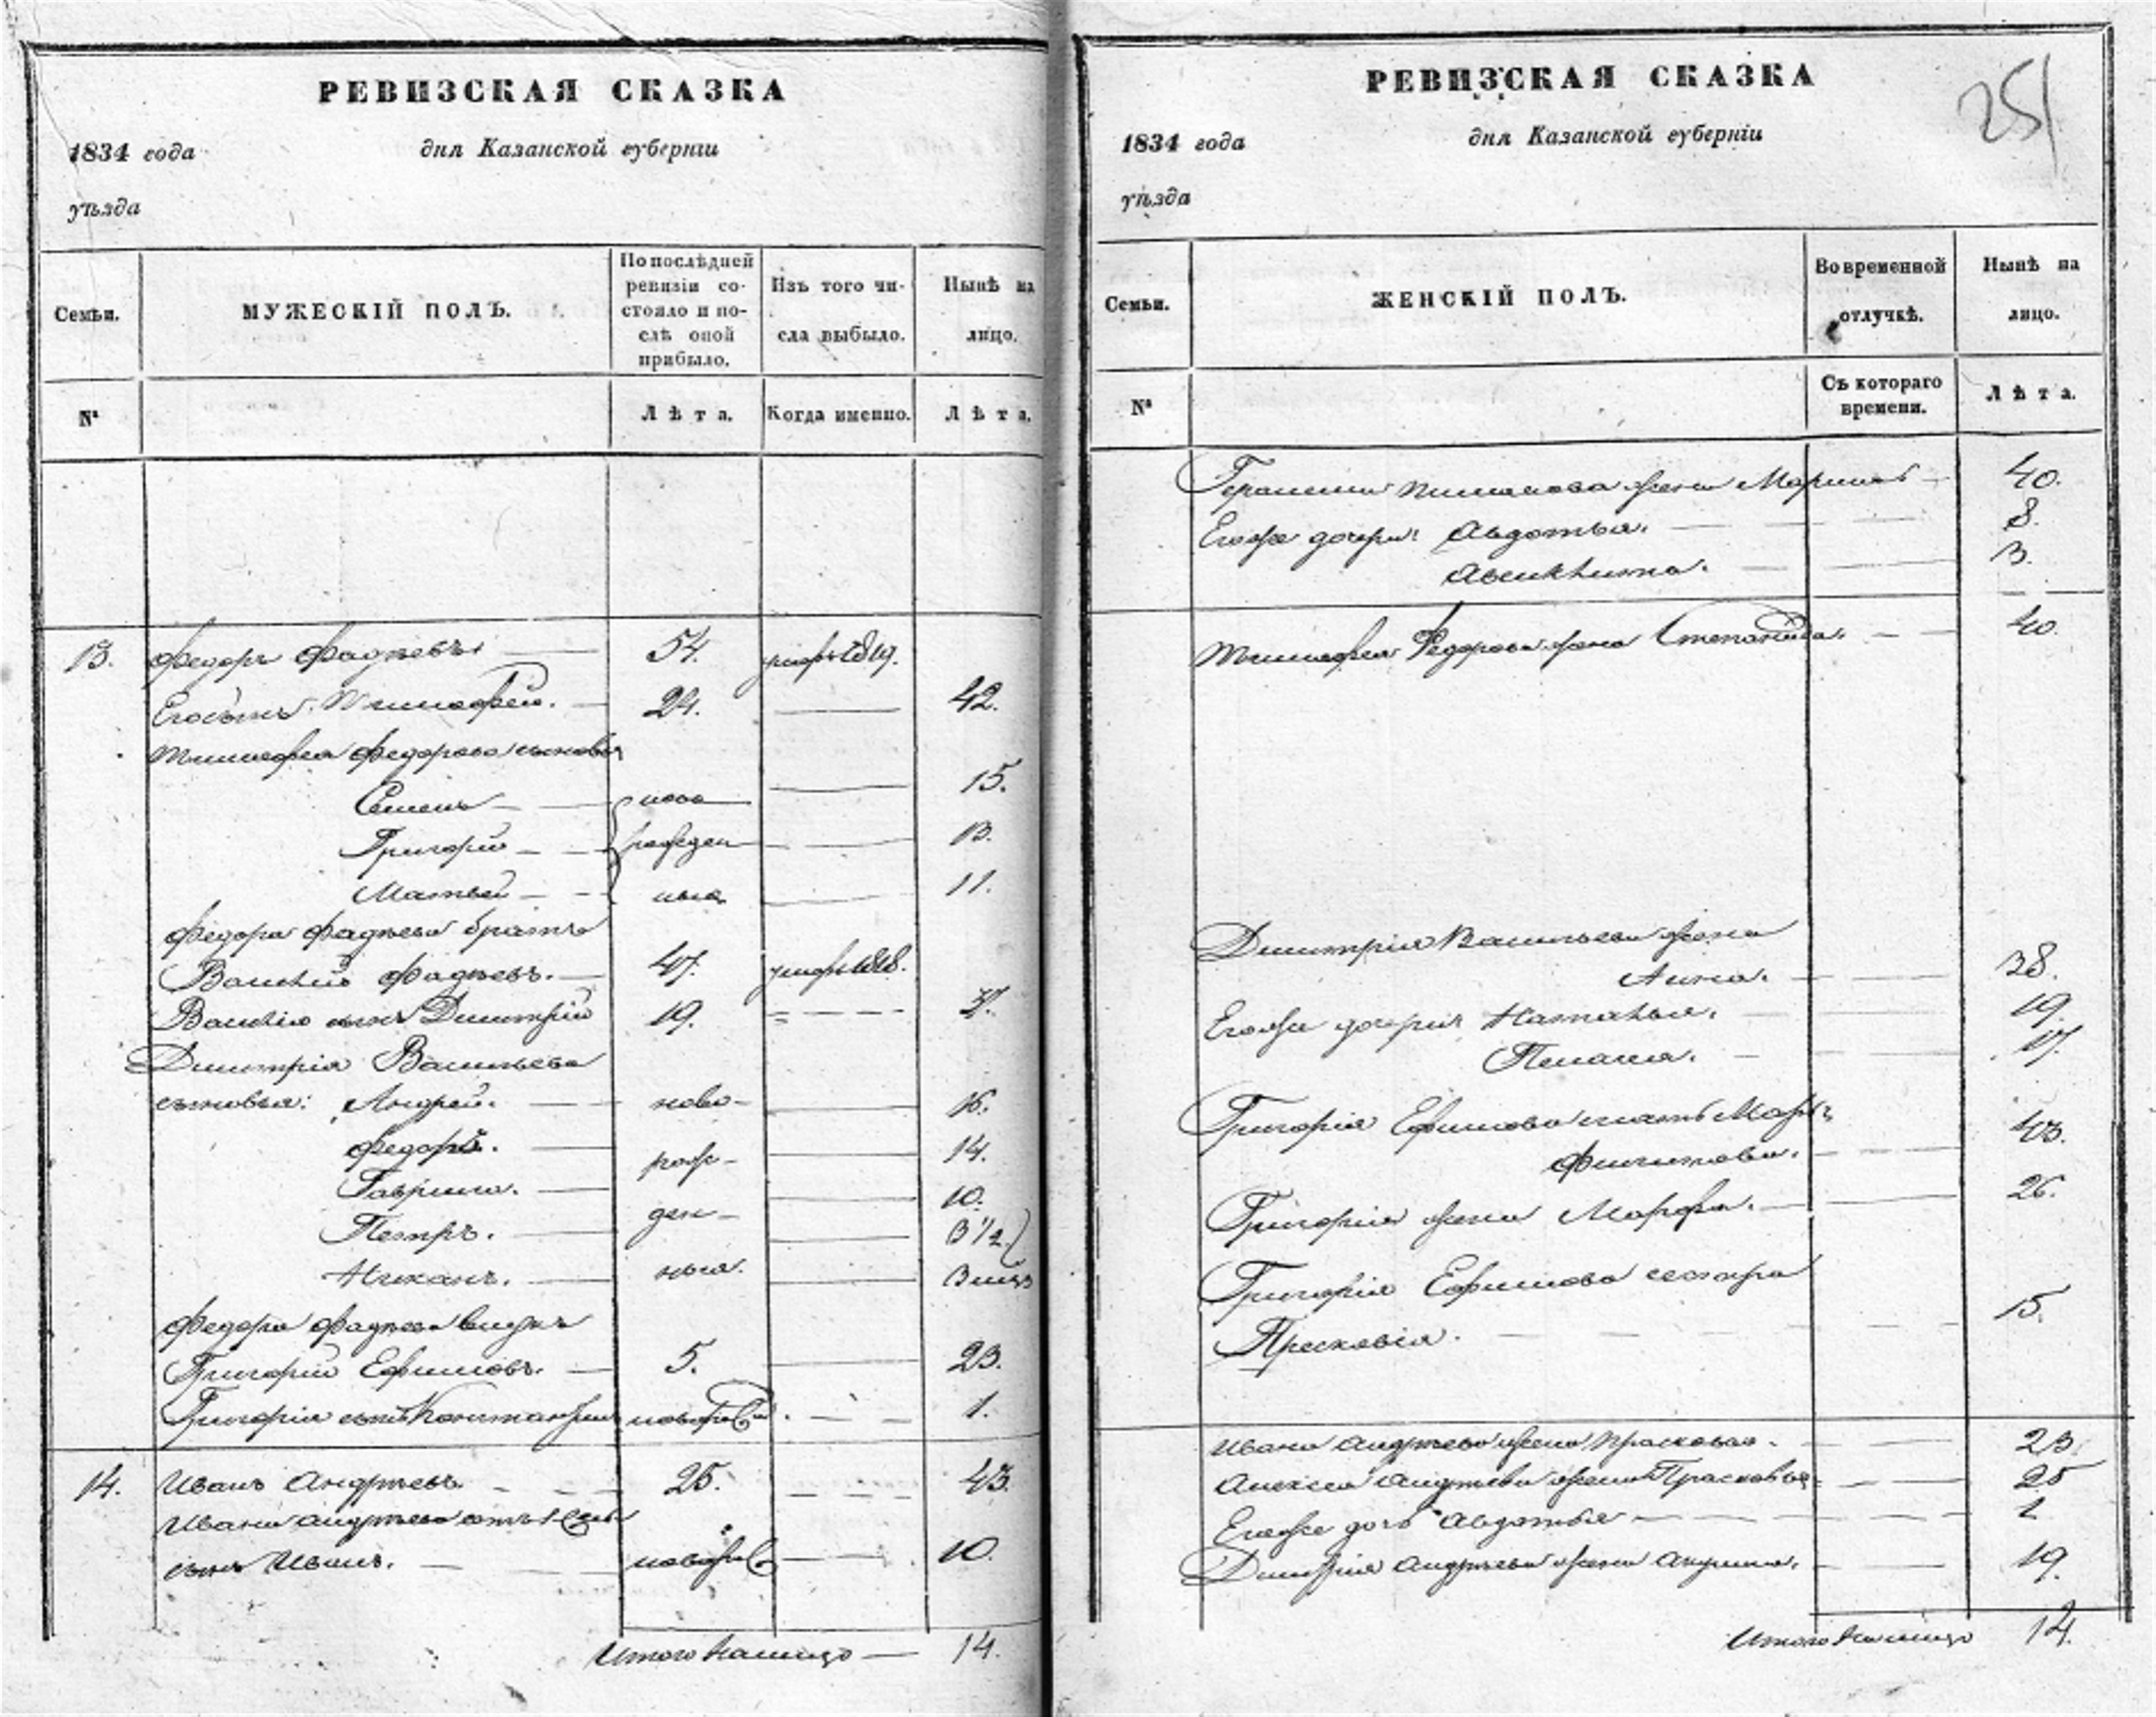 РЕВИЗСКАЯ СКАЗКА
1834 года
дня Казанской губернiи
уѣзда
Семьи.
МУЖЕСКIЙ ПОЛЪ.
По послѣдней ревизiи со-
стояло и по-
слѣ оной
прибыло.
Изъ того чи-
сла выбыло.
Нынѣ на
лицо.
№
Лѣта.
Когда именно.
Лѣта.
13. Федоръ Фадѣевъ 54. 1819.
Его сынъ Тимофей. 24. 42.
Тимофея Федорова сыновья
Семенъ ново 15.
Григорiй рожден 13.
Матвей ныя 11.
Федора Фадѣева братъ
Василiй Фадѣевъ. 47. умеръ 1818.
Василiя сынъ Димитрiй 19. 37.
Димитрiя Васильева
сыновья: Андрей. ново- 16.
Федоръ. рож- 14.
Гаврила. ден- 10.
Петръ. 3 1/2
ныя.
Федора Фадѣева внукъ
Григорiй Ефимовъ. 5. 23.
Григорiя сынъ 1.
14. Иванъ Андреевъ 25. 43.
Ивана Андреева
сынъ Иванъ. 10.
Итого налицо 14.
РЕВИЗСКАЯ СКАЗКА
251
1834 года
дня Казанской губернiи
уѣзда
Семьи.
ЖЕНСКIЙ ПОЛЪ.
Во временной
отлучкѣ.
Нынѣ на
лицо.
№
Съ котораго
времени.
Лѣта.
жена Марина 40.
Ееже дочери: Авдотья. 8.
3.
Тимофея Федорова жена Степанида. 40
Димитрiя Васильева жена
Анна. 38.
Ееже дочери Наталья. 19.
Пелагея. 17.
Григорiя Ефимова мать Марья
43.
Григорiя жена Марфа. 26.
Григорiя Ефимова сестра
Прасковiя. 15.
Ивана Андреева жена Прасковья. 23.
Алексея Андреева жена Прасковья 25
Ееже дочь Авдотья 1
Димитрiя Андреева жена Акулина. 19.
Итого налицо 14.